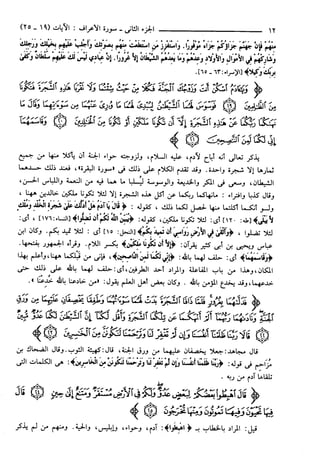 ١٢ الجزء الثانى - سورة الأعراف : الآيات (١٩ - ٢٥)
مِنْهُمْ فَإِنَّ جَهَنَّمَ جَزَاؤُكُمْ جَزَاءً مَوْفُورًا. وَاسْتَفْزِزْ مَنِ اسْتَطَعْتَ مِنْهُمْ بِصَوْتِكَ وَأَجْلِبْ عَلَيْهِمْ بِخَيْلِكَ وَرَجِلِكَ
وَشَارِكْهُمْ فِي الْأَمْوَالِ وَالْأَوْلَادِ وَعِدْهُمْ وَمَا يَعِدُهُمُ الشَّيْطَانُ إِلَّا غُرُورًا. إِنَّ عِبَادِي لَيْسَ لَكَ عَلَيْهِمْ سُلْطَانٌ وَكَفَى
بِرَبِّكَ وَكِيلًا﴾ [الإسراء: ٦٣ - ٦٥].
وَيَا آدَمُ اسْكُنْ أَنْتَ وَزَوْجُكَ الْجَنَّةَ فَكُلَا مِنْ حَيْثُ شِئْتُمَا وَلَا تَقْرَبَا هَذِهِ الشَّجَرَةَ فَتَكُونَا
مِنَ الظَّالِمِينَ (١٩) فَوَسْوَسَ لَهُمَا الشَّيْطَانُ لِيُبْدِيَ لَهُمَا مَا وُورِيَ عَنْهُمَا مِنْ سَوْآتِهِمَا وَقَالَ مَا
نَهَاكُمَا رَبُّكُمَا عَنْ هَذِهِ الشَّجَرَةِ إِلَّا أَنْ تَكُونَا مَلَكَيْنِ أَوْ تَكُونَا مِنَ الْخَالِدِينَ (٢٠) وَقَاسَمَهُمَا
إِنِّي لَكُمَا لَمِنَ النَّاصِحِينَ (٢١)
يذكر تعالى أنه أباح لآدم، عليه السلام، ولزوجته حواء الجنة أن يأكلا منها من جميع
ثمارها إلا شجرة واحدة. وقد تقدم الكلام على ذلك فى «سورة البقرة»، فعند ذلك حسدهما
الشيطان، وسعى فى المكر والخديعة والوسوسة ليُسلبا ما هما فيه من النعمة واللباس الحسن،
وقال كذبا وافتراء: ما نهاكما ربكما عن أكل هذه الشجرة إلا لئلا تكونا ملكين خالدين ههنا ،
ولو أنكما أكلتما منها لحصل لكما ذلك ، كقوله : ﴿قَالَ يَا آدَمُ هَلْ أَدُلُّكَ عَلَى شَجَرَةِ الْخُلْدِ وَمُلْكٍ
لَا يَبْلَى﴾ [طه: ١٢٠] أى: لئلا تكونا ملكين، كقوله: ﴿يُبَيِّنُ اللَّهُ لَكُمْ أَنْ تَضِلُّوا﴾ [النساء: ١٧٦] ، أى:
لئلا تضلوا ، ﴿وَأَلْقَى فِي الْأَرْضِ رَوَاسِيَ أَنْ تَمِيدَ بِكُمْ﴾ [النحل: ١٥] أى : لئلا تميد بكم. وكان ابن
عباس ويحيى بن أبى كثير يقرآن: ﴿إِلَّا أَنْ تَكُونَا مَلِكَيْنِ﴾ بكسر اللام. وقرأه الجمهور بفتحها.
﴿وَقَاسَمَهُمَا﴾ أى: حلف لهما بالله: ﴿إِنِّي لَكُمَا لَمِنَ النَّاصِحِينَ﴾، فإنى من قبلكما ههنا، وأعلم بهذا
المكان، وهذا من باب المفاعلة والمراد أحد الطرفين، أى: حلف لهما بالله على ذلك حتى
خدعهما، وقد يخدع المؤمن بالله . وكان بعض أهل العلم يقول: «من خادعنا بالله خُدعنا ».
فَدَلَّاهُمَا بِغُرُورٍ فَلَمَّا ذَاقَا الشَّجَرَةَ بَدَتْ لَهُمَا سَوْآتُهُمَا وَطَفِقَا يَخْصِفَانِ عَلَيْهِمَا مِنْ وَرَقِ
الْجَنَّةِ وَنَادَاهُمَا رَبُّهُمَا أَلَمْ أَنْهَكُمَا عَنْ تِلْكُمَا الشَّجَرَةِ وَأَقُلْ لَكُمَا إِنَّ الشَّيْطَانَ لَكُمَا عَدُوٌّ مُبِينٌ
(٢٢) قَالَا رَبَّنَا ظَلَمْنَا أَنْفُسَنَا وَإِنْ لَمْ تَغْفِرْ لَنَا وَتَرْحَمْنَا لَنَكُونَنَّ مِنَ الْخَاسِرِينَ (٢٣)
قال مجاهد: جعلا يخصفان عليهما من ورق الجنة، قال: كهيئة الثوب. وقال الضحاك بن
مُزاحم فى قوله: ﴿رَبَّنَا ظَلَمْنَا أَنْفُسَنَا وَإِنْ لَمْ تَغْفِرْ لَنَا وَتَرْحَمْنَا لَنَكُونَنَّ مِنَ الْخَاسِرِينَ﴾: هى الكلمات التى
تلقاها آدم من ربه .
قَالَ اهْبِطُوا بَعْضُكُمْ لِبَعْضٍ عَدُوٌّ وَلَكُمْ فِي الْأَرْضِ مُسْتَقَرٌّ وَمَتَاعٌ إِلَى حِينٍ (٢٤) قَالَ
فِيهَا تَحْيَوْنَ وَفِيهَا تَمُوتُونَ وَمِنْهَا تُخْرَجُونَ (٢٥)
قيل: المراد بالخطاب بـ ﴿اهْبِطُوا﴾: آدم، وحواء، وإبليس، والحية. ومنهم من لم يذكر